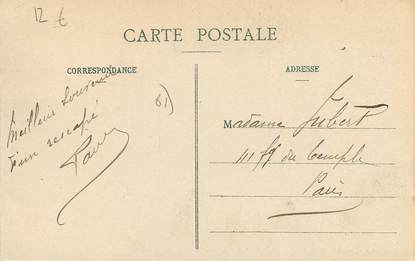 12 €
CARTE POSTALE
CORRESPONDANCE
ADRESSE
Meilleur souvenir
d'un rescapé
61)
Madame Gubert
111 Fg du Temple
Paris